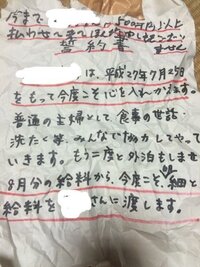 今まで 500万円以上
払わせて
ません
誓約書
は、平成27年7月25日
をもって今度こそ心を入れかえます。
普通の主婦として食事の世話
洗たく等、みんなで協力してやって
いきます。もう二度と外泊もしませ
8月分の給料から、今度こそ、明細と
給料を さんに渡します。